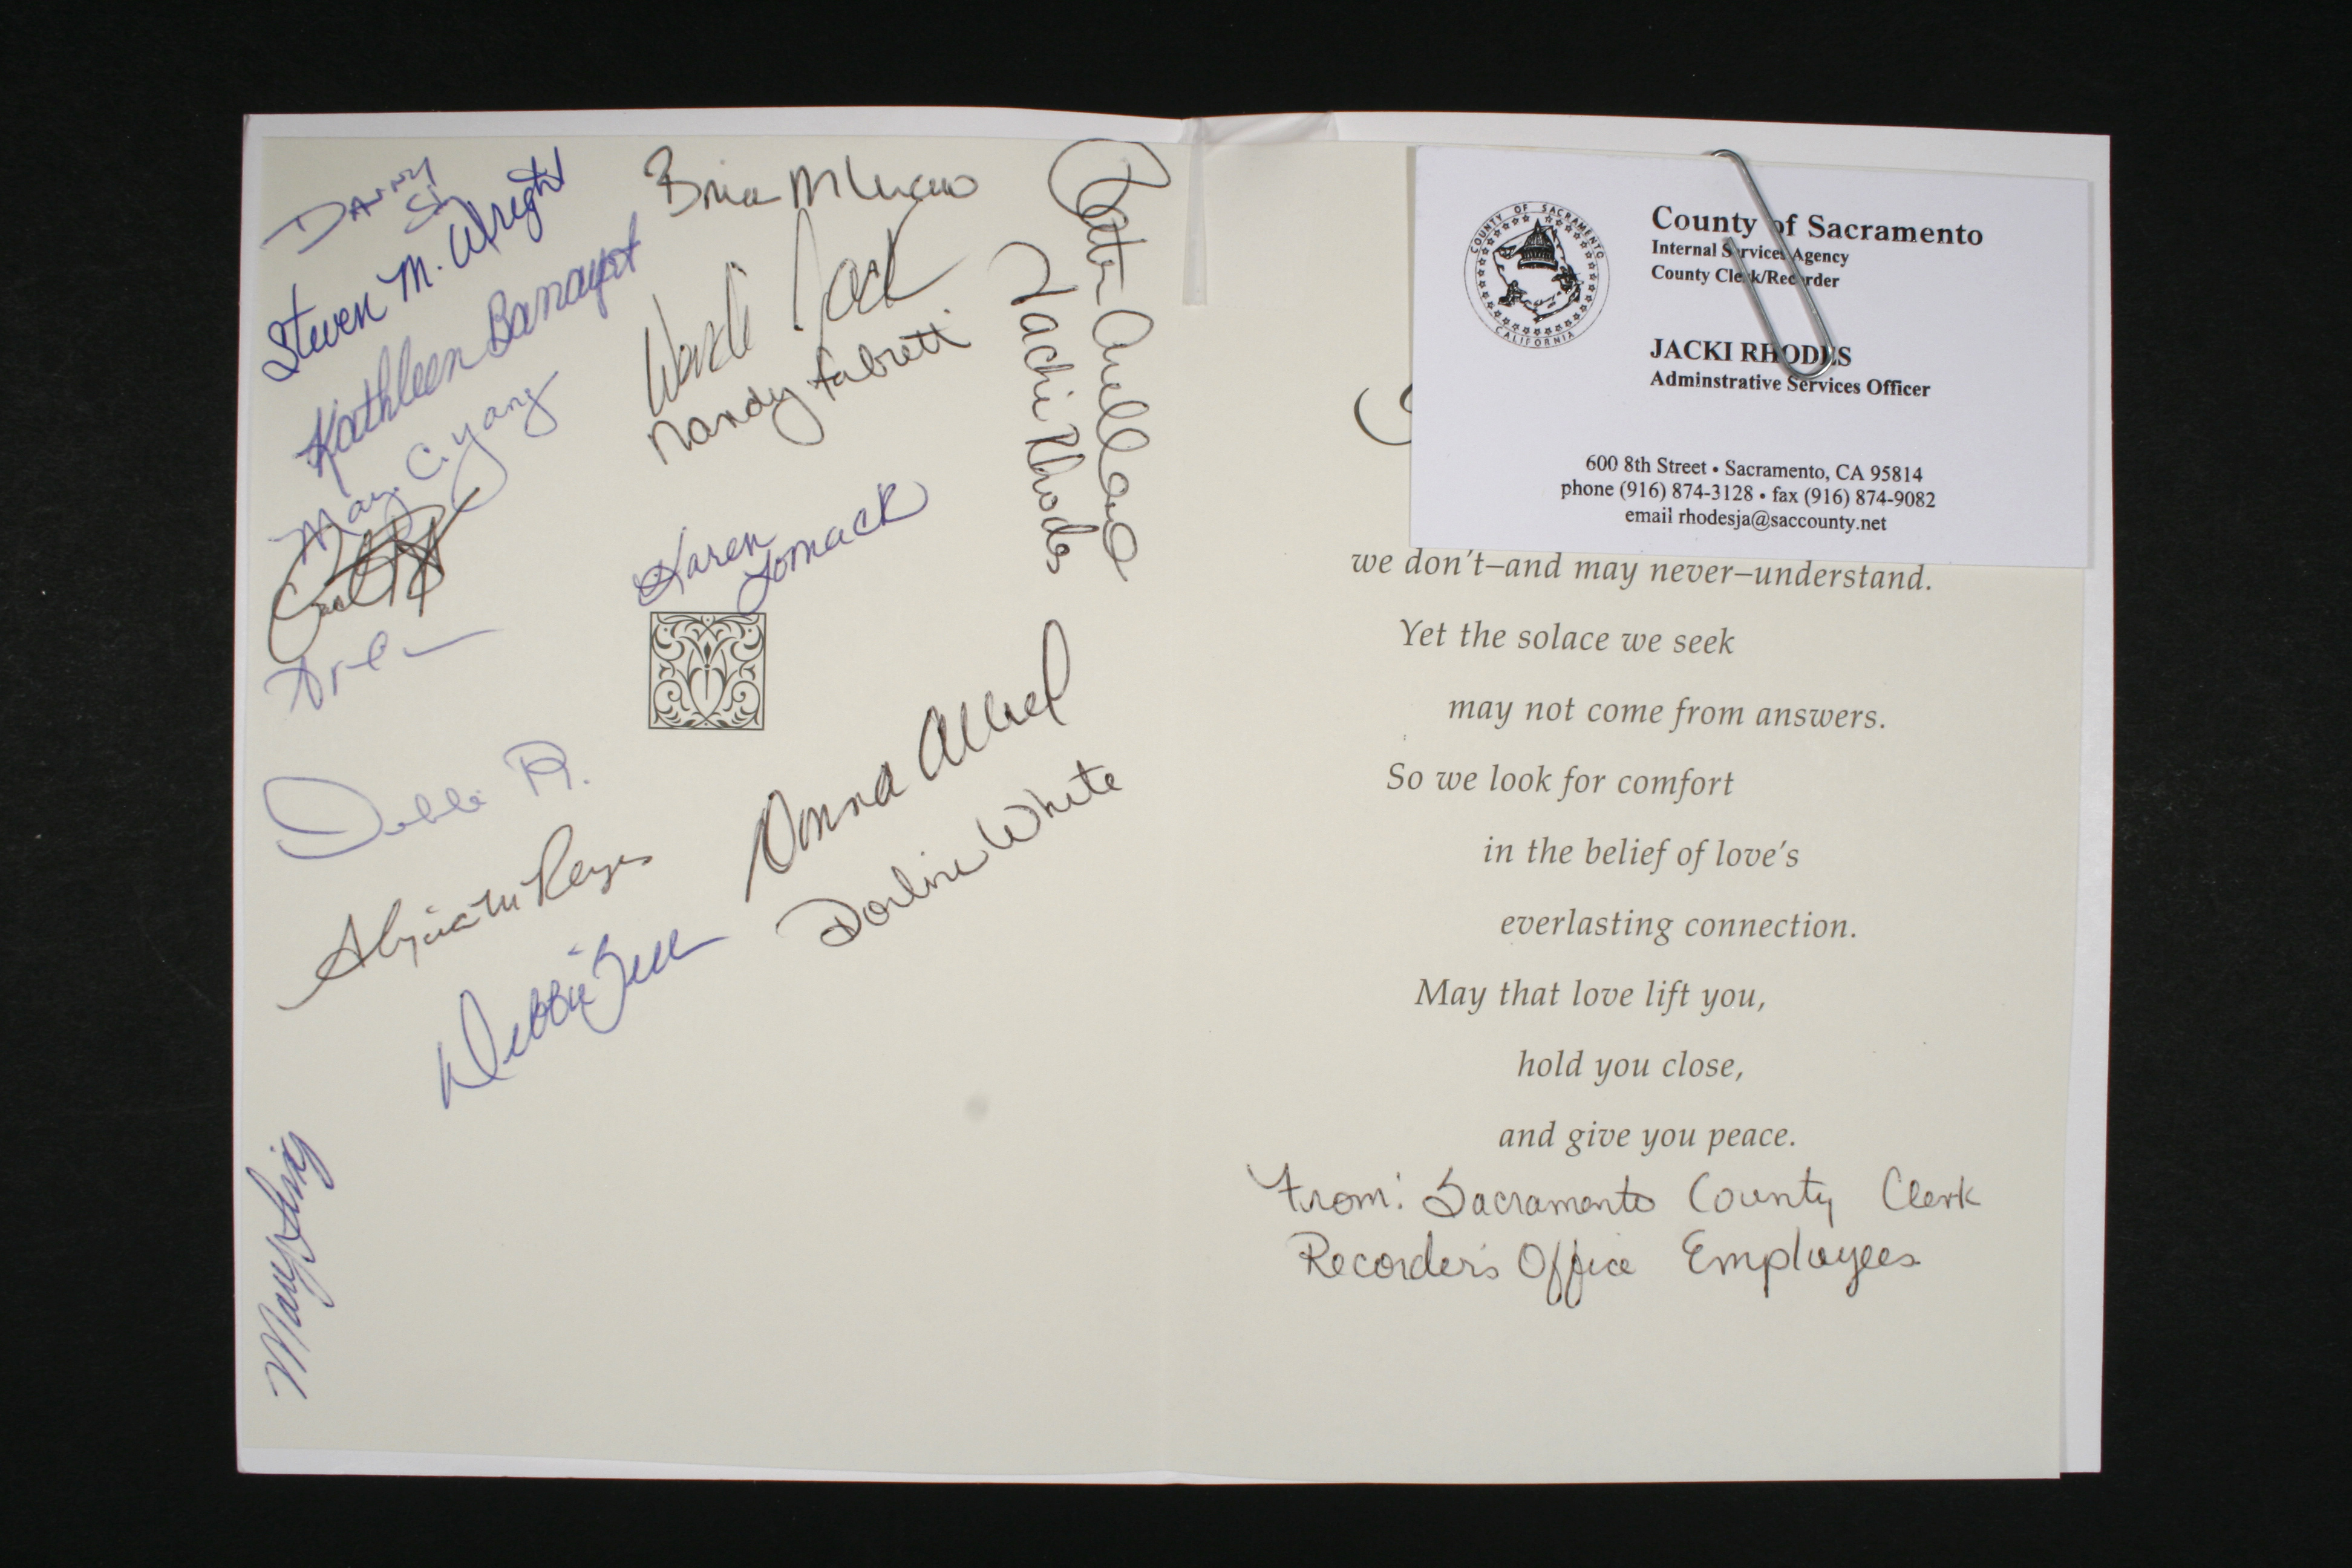 Danny
Steven M. Wright
Kathleen Banayat
May C. yang
Debbi R.
Alycia M Reyes
Debbie
Mary
Brian
Jack
Nancy Fabretti
Karen
Lomack
Donna Allred
Dorline White
Jacki Rhodes
COUNTY OF SACRAMENTO
CALIFORNIA
County of Sacramento
Internal Services Agency
County Clerk/Recorder
JACKI RHODES
Adminstrative Services Officer
600 8th Street • Sacramento, CA 95814
phone (916) 874-3128 • fax (916) 874-9082
email rhodesja@saccounty.net
we don't–and may never–understand.
Yet the solace we seek
may not come from answers.
So we look for comfort
in the belief of love's
everlasting connection.
May that love lift you,
hold you close,
and give you peace.
From: Sacramento County Clerk
Recorder's Office Employees